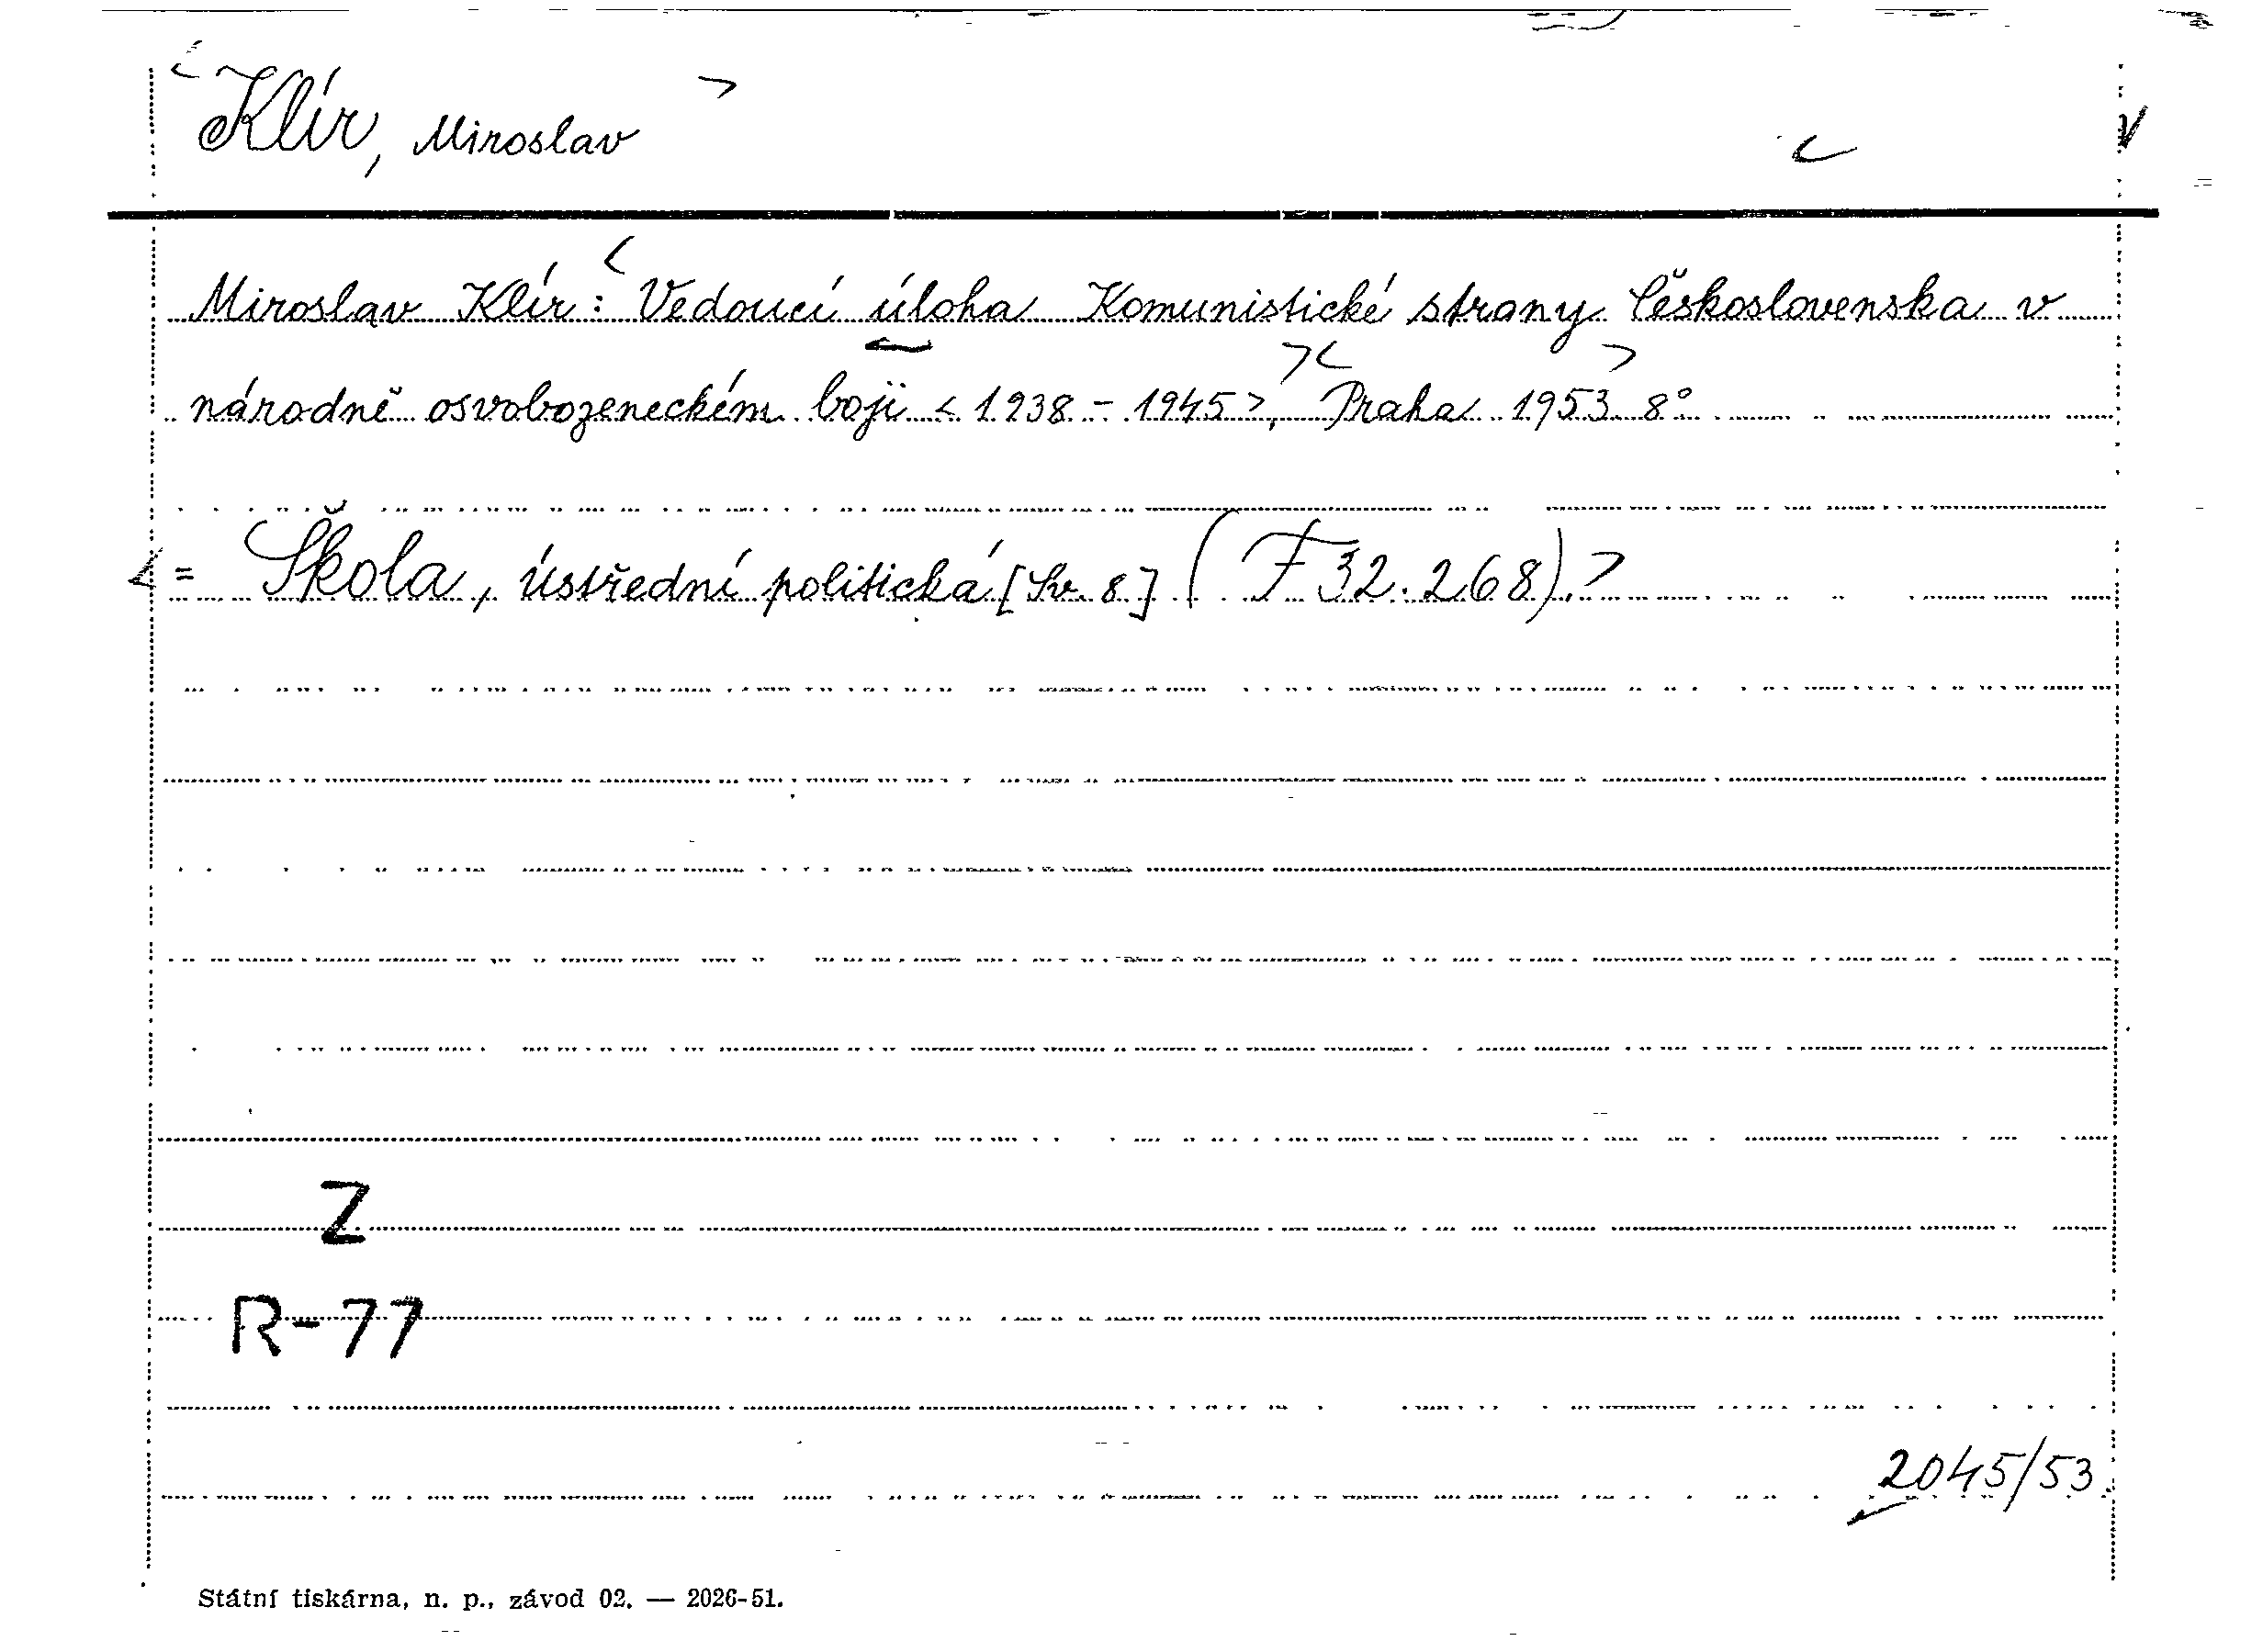 Klír, Miroslav
Miroslav Klír: Vedoucí úloha Komunistické strany Československa v
národně osvobozeneckém boji < 1938 - 1945 >, Praha 1953 8°
= Škola, ústřední politická [Sv. 8] (F 32.268).
Z
R-77
2045/53
Státní tiskárna, n. p., závod 02. — 2026-51.